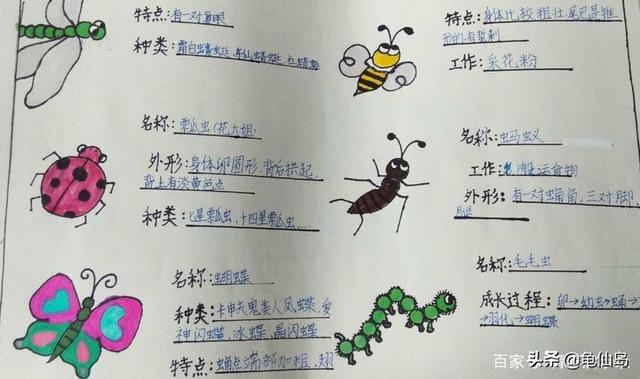 特点:有一对复眼
种类:霜白蜻蜓、赤仙蜻蜓、红蜻蜓
名称:瓢虫(花大姐)
外形:身体卵圆形,背后拱起,
背上有淡黄斑点
种类:七星瓢虫、十四星瓢虫……
名称:蝴蝶
种类:卡申夫鬼美人凤蝶、爱
神闪蝶、冰蝶、晶闪蝶
特点:触角端部加粗,翅
特点:身体比较粗壮,尾巴是锥
形的,有蜇刺
工作:采花粉
名称:蚂蚁
工作:搬运食物
外形:有一对触角,三对脚,
腿
名称:毛毛虫
成长过程:卵→幼虫→蛹→
→羽化→蝴蝶
百家
头条@龟仙岛